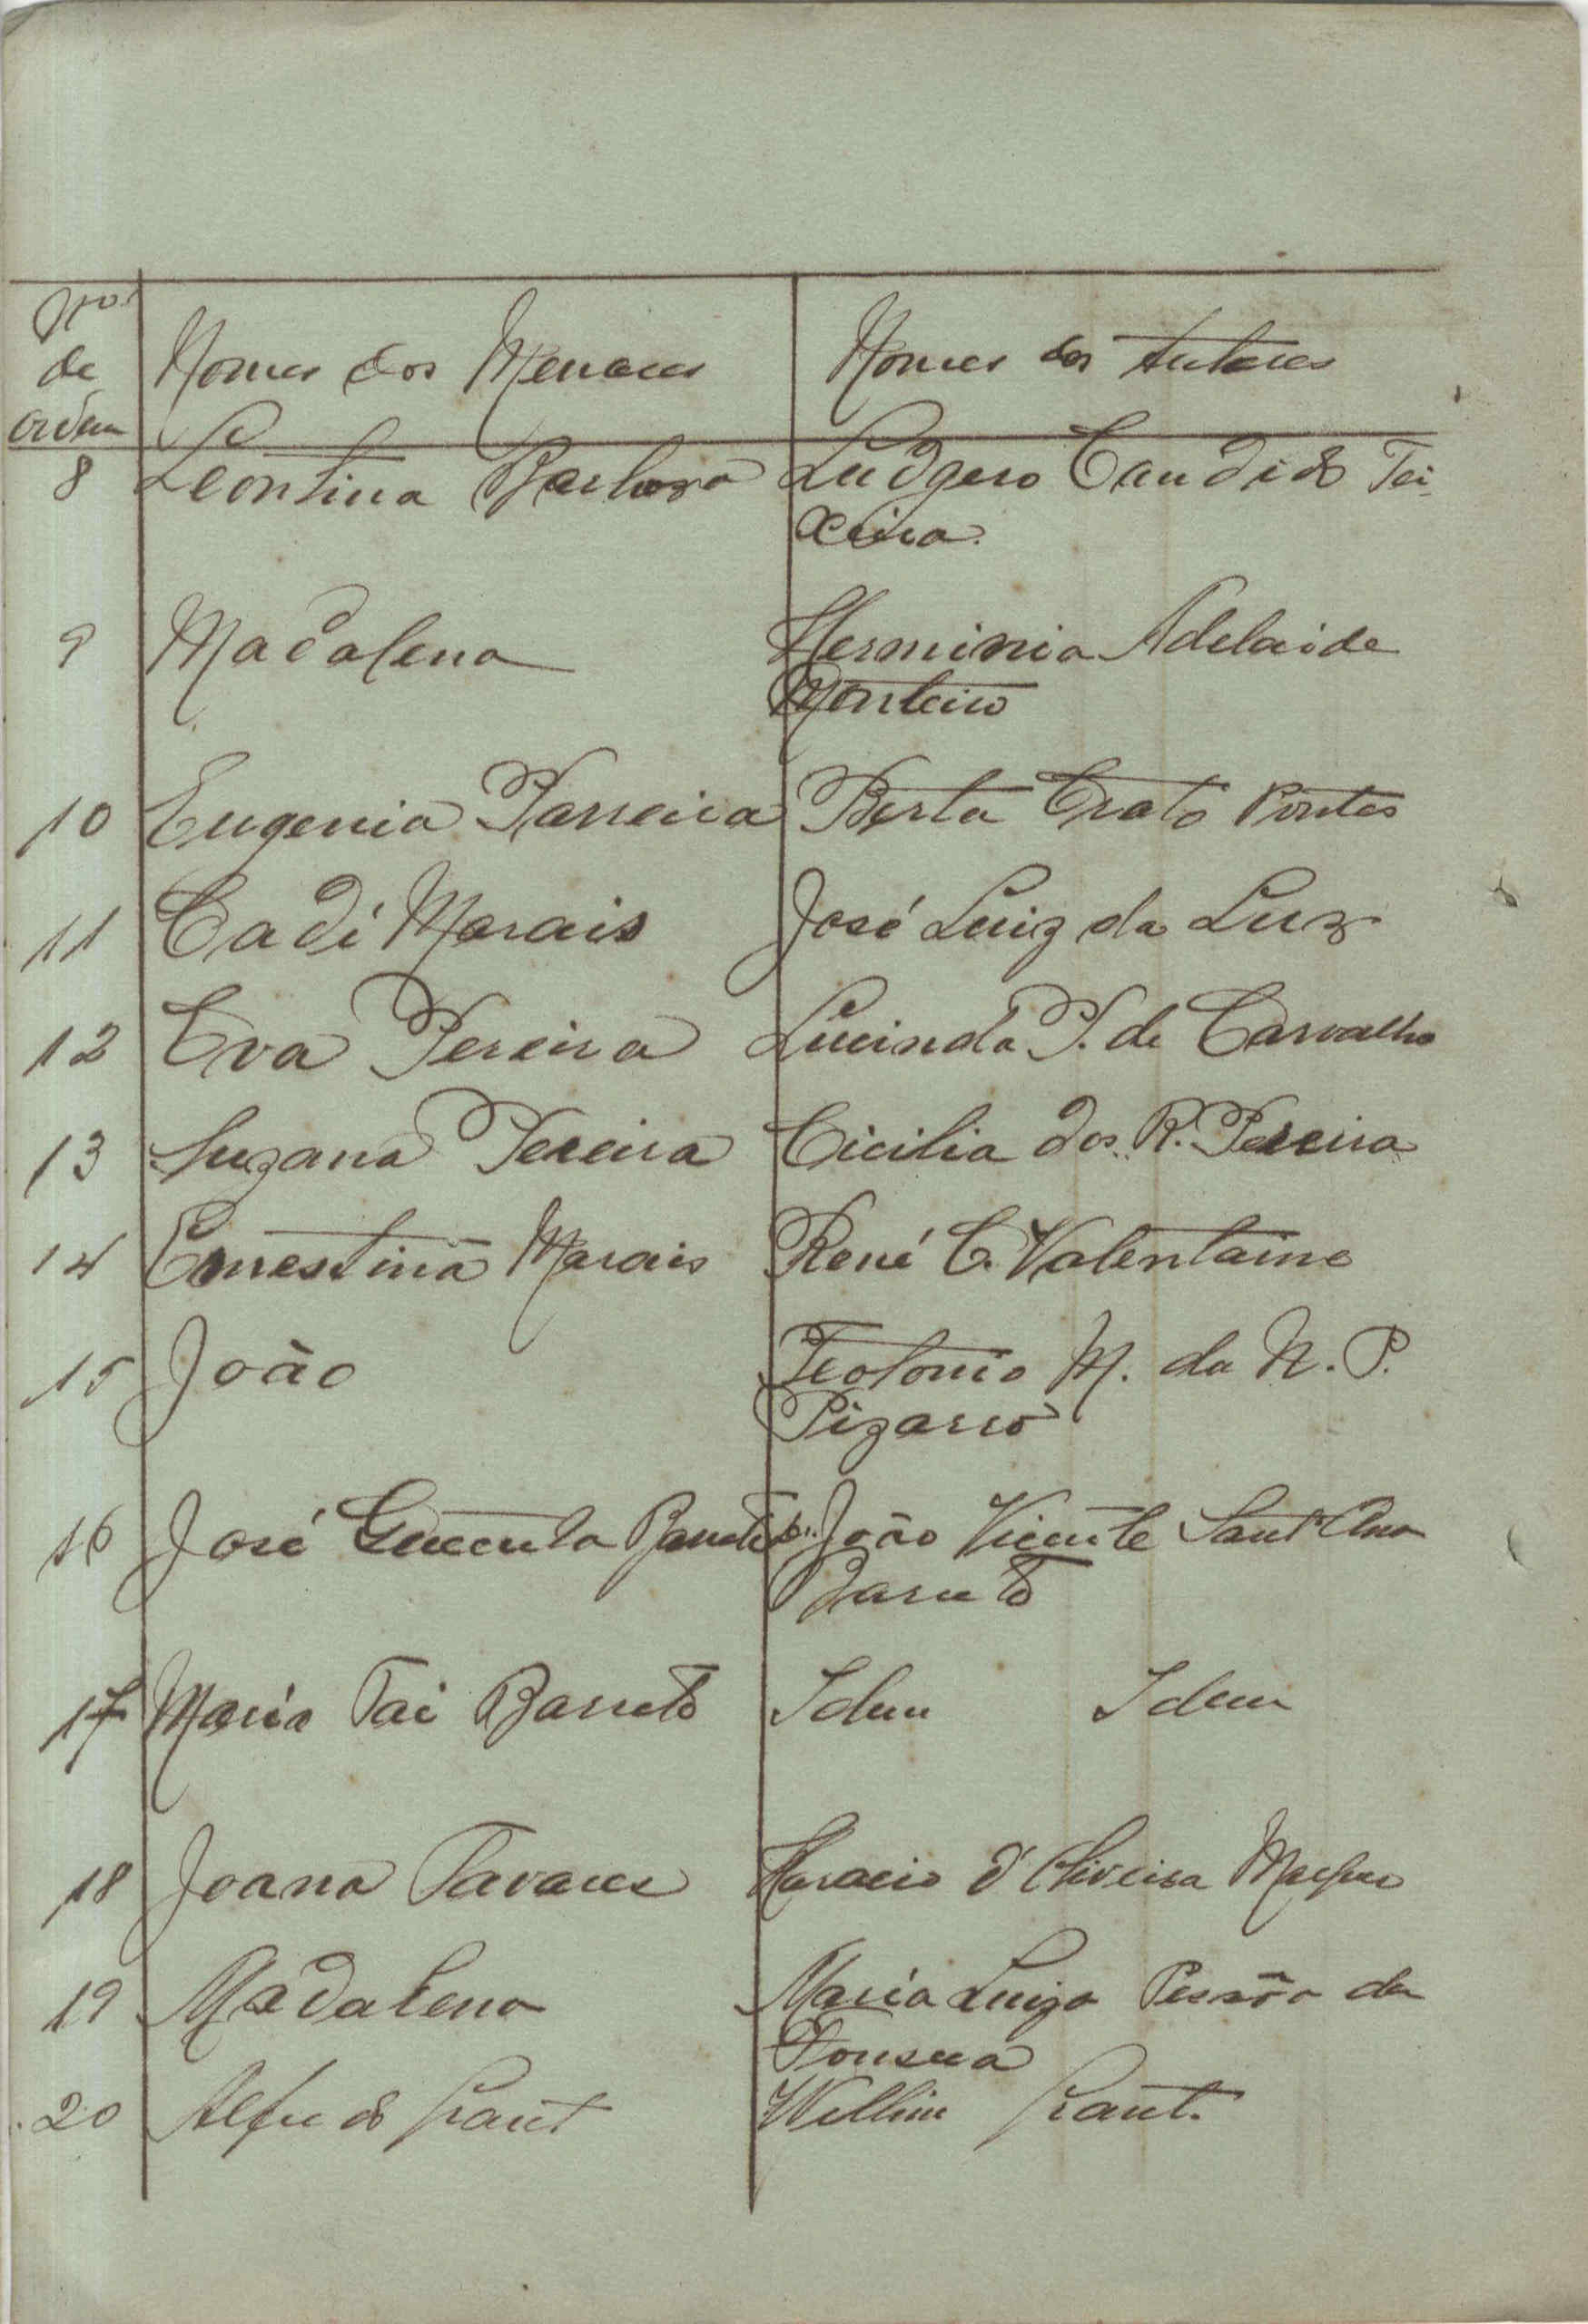 Nos
de
ordem
Nomes dos Menores
Nomes dos Autores
8 Leontina Barbosa Ludgero Candido Tei-
xeira.
9 Madalena Herminia Adelaide
Monteiro
10 Eugenia Parreira Berta Crato Pontes
11 Cadí Morais José Luiz da Luz
12 Eva Pereira Lucinda P. de Carvalho
13 Suzana Pereira Cicilia dos R. Pereira
14 Ernestina Morais René C. Valentaine
15 João Teotonio M. da N. P.
Pizarro
16 José Barreto João Vicente Sant'Ana
Barreto
17 Maria Tai Barreto Idem Idem
18 Joana Tavares Horacio d'Oliveira
19 Madalena Maria Luiza Pessôa da
Fonseca
20 Alfredo Grant Grant.